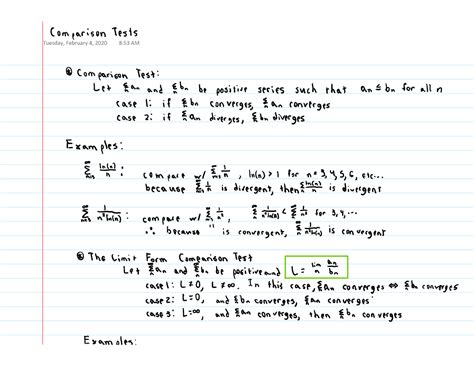 Comparison Tests
Tuesday, February 4, 2020 8:53 AM
① Comparison Test:
Let Σaₙ and Σbₙ be positive series such that aₙ ≤ bₙ for all n
case 1: if Σbₙ converges, Σaₙ converges
case 2: if Σaₙ diverges, Σbₙ diverges
Examples:
Σ ln(n)/n : compare w/ Σ 1/n , ln(n) > 1 for n = 3, 4, 5, 6, etc...
because Σ 1/n is divergent, then Σ ln(n)/n is divergent
Σ 1/(n² ln(n)) : compare w/ Σ 1/n² , Σ 1/(n² ln(n)) < Σ 1/n² for 3, 4, ...
∴ because " is convergent, Σ 1/(n² ln(n)) is convergent
② The Limit Form Comparison Test
Let Σaₙ and Σbₙ be positive and L = lim n aₙ/bₙ
case 1: L ≠ 0, L ≠ ∞. In this case, Σaₙ converges ⇔ Σbₙ converges
case 2: L = 0, and Σbₙ converges, Σaₙ converges
case 3: L = ∞, and Σaₙ converges, then Σbₙ converges
Examples: